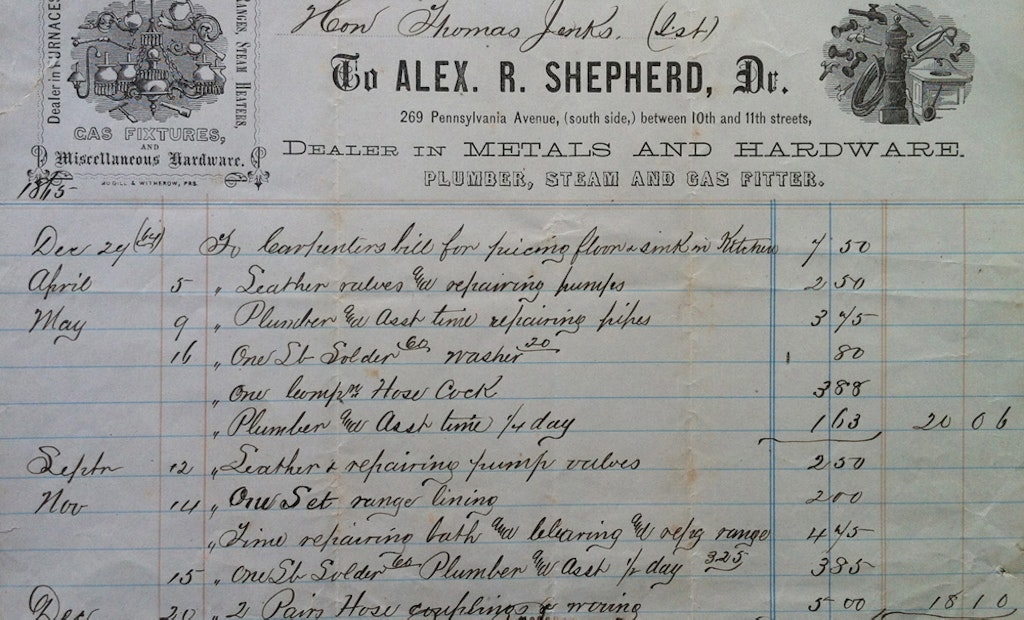 Hon Thomas Jenks. (1st)
Dealer in FURNACES
RANGES, STEAM HEATERS,
GAS FIXTURES,
AND
Miscellaneous Hardware.
McGILL & WITHEROW, PRS.
To ALEX. R. SHEPHERD, Dr.
269 Pennsylvania Avenue, (south side,) between 10th and 11th streets,
DEALER IN METALS AND HARDWARE.
PLUMBER, STEAM AND GAS FITTER.
1865
Dec 29 (64) To Carpenters bill for piecing floor & sink in Kitchen 7 50
April 5 " Leather valves and repairing pumps 2 50
May 9 " Plumber and Asst time repairing pipes 3 75
16 " One Lb Solder 60 washer 20 80
" One Comp Hose Cock 3 88
" Plumber and Asst time 1/4 day 1 63 20 06
Septr 12 " Leather & repairing pump valves 2 50
Nov 14 " One Set range lining 2 00
" Time repairing bath and clearing and repg range 4 75
15 " One Lb Solder 60 Plumber and Asst 1/2 day 325 3 85
Dec 20 " 2 Pairs Hose couplings & 5 00 18 10